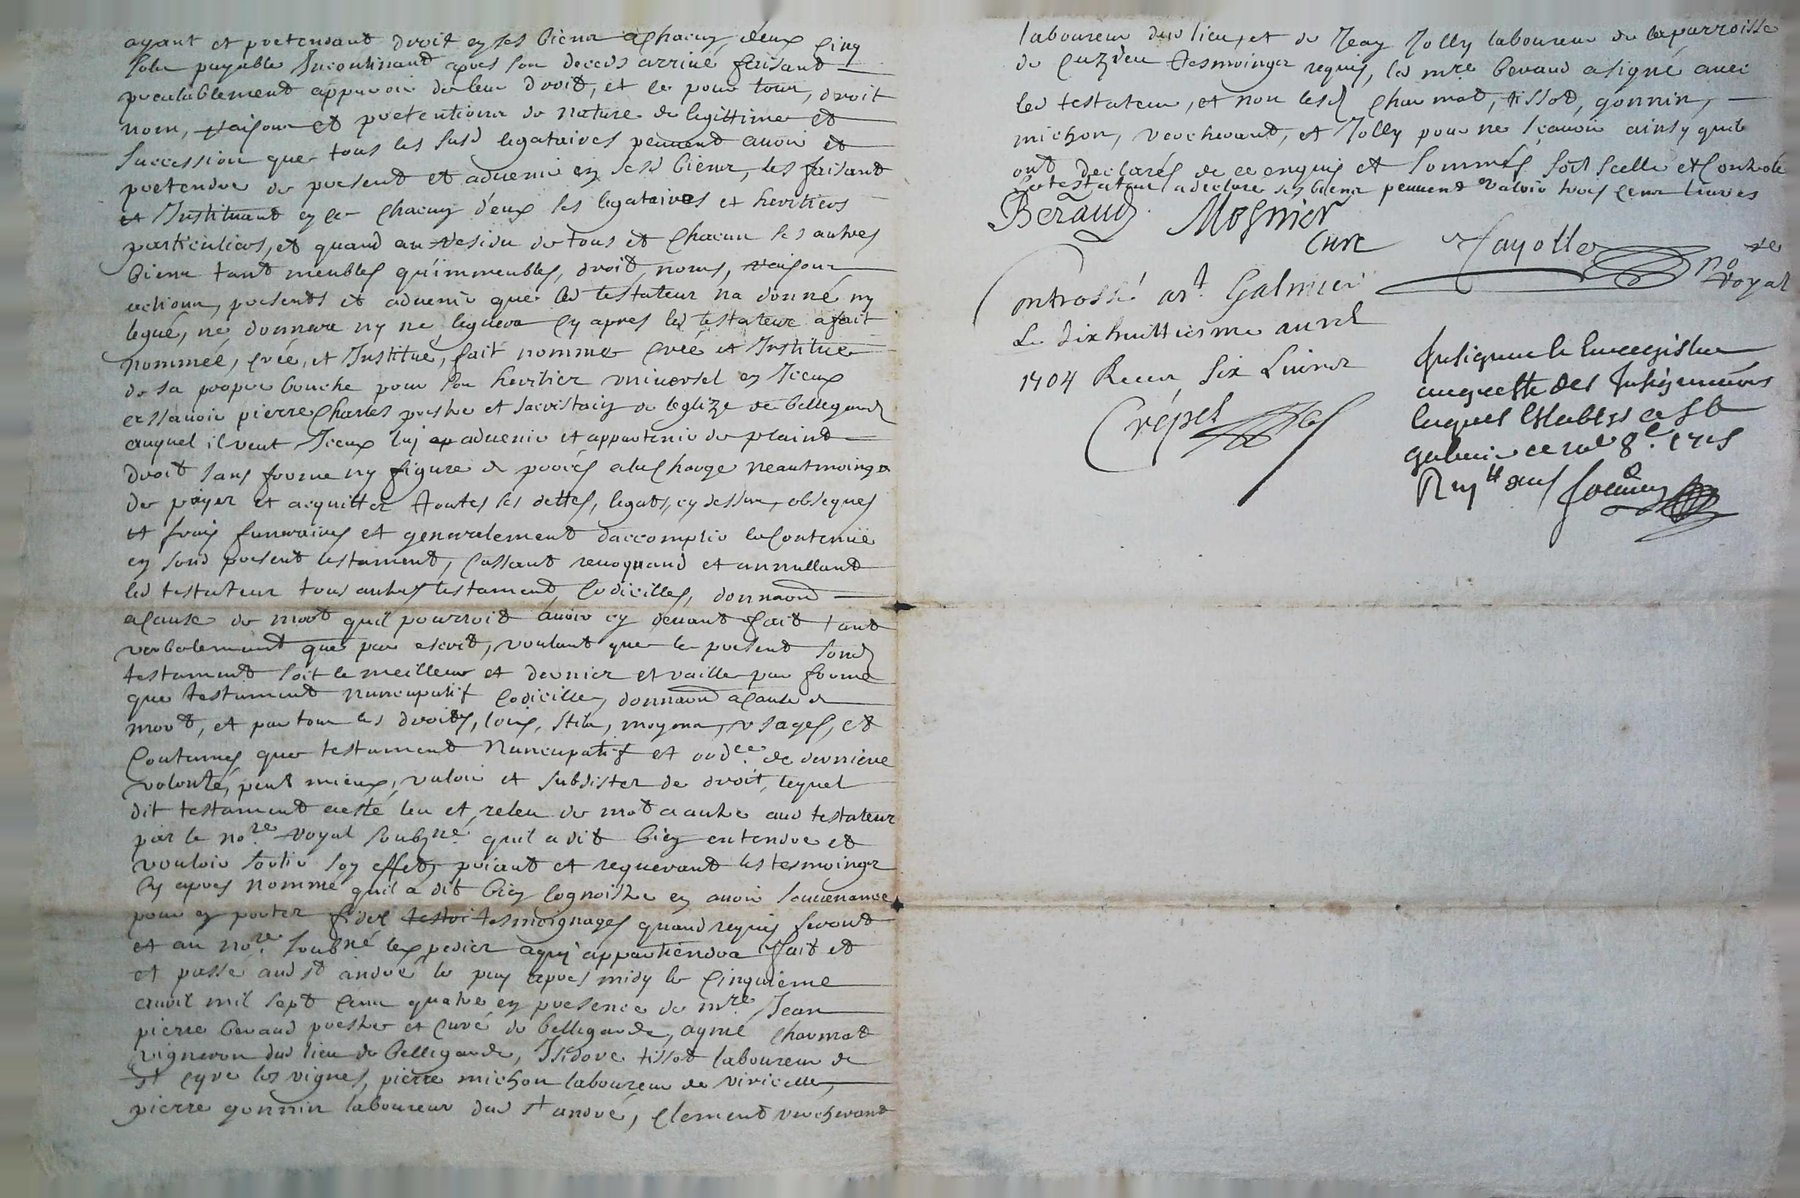 ayant et pretendant droit en ses biens a chacun d'eux cinq
sols payable Incontinant apres son deceds arrivé faisant
prealablement apparoir de leur droit, et ce pour tous, droit
nom, raisons et pretentions de nature de legittime et
succession que tous les susd legataires peuvent avoir et
pretendre de present et advenir en sesd biens, les faisant
et Instituant en ce chacun d'eux ses legataires et heritiers
particuliers, et quand au residu de tous et chacun ses autres
biens tant meubles qu'immeubles, droit, noms, raisons
actions, presents et advenir que led testateur na donné ny
legué, ne donnera ny ne leguera cy apres led testateur a fait
nommeé, creé, et Institué, fait nomme creé et Institue
de sa propre bouche pour son heritier universel en Iceux
essavoir pierre Charles prestre et sacristain de leglize de bellegarde
auquel il veut Iceux luy advenir et appartenir de plaint
droit sans forme ny figure de procés a la charge neautmoings
de payer et acquitter toutes ses dettes, legats, cy dessus, obseques
et frais funeraires et generalement daccomplir le Contenüe
en sond present testament, Cassant revoquand et annullant
led testateur tous autres testament, Codicilles, donnaon
a Cause de mort quil pourroit avoir cy devant fait tant
verbalement que par escrit, voulant que le present sond
testament soit le meilleur et dernier et vaille par forme
que testament nuncupatif Codicille, donnaon a Cause de
mort, et par tous les droits, loix, stile, moyens, usages, et
Coutumes que testament Nuncupatif et ordce de derniere
volonté, peut mieux, valoir et subsister de droit, lequel
dit testament a esté leu et, releu de mot a autre aud testateur
par le nore royal soubzne quil a dit bien entendre et
vouloir sortir son effet, priant et requerant les tesmoings
Cy apres nommé quil a dit bien Cognoistre en avoir souvenance
pour en porter fidel testoi tesmoignages quand requis seront
et au nore soubné lexpedier a qui appartiendra fait et
et passé aud st andré le puy apres midy le Cinquieme
avril mil sept Cens quatre en presence de mre Jean
pierre beraud prestre et Curé de bellegarde, aymé Charmat
vigneron dud lieu de bellegarde, Isidore tissot laboureur de
st Cyre les vignes, pierre michon laboureur de viricelle,
pierre gonnin laboureur dud st andré, Clement vercherand
laboureur dud lieu, et de Jean Jolly laboureur de la parroisse
de Cuzieu tesmoings requis, led mre beraud a signé avec
led testateur, et non lesd Charmat, tissot, gonnin,
michon, vercherand, et Jolly pour ne scavoir ainsy quils
ont declarés de ce enquis et sommés soit scellé et Controlé
le testateur a declaré ses biens peuvent valoir trois cens livres
Beraud Mosnier
Curé Fayolle nore royal
Controllé a st. Galmier
Le dix huittiesme avril
1704 Receu six Livres
Crépet
Insigneur le lenregistre
au greffe des Insignuaons
laques Establys a st
galmier ce